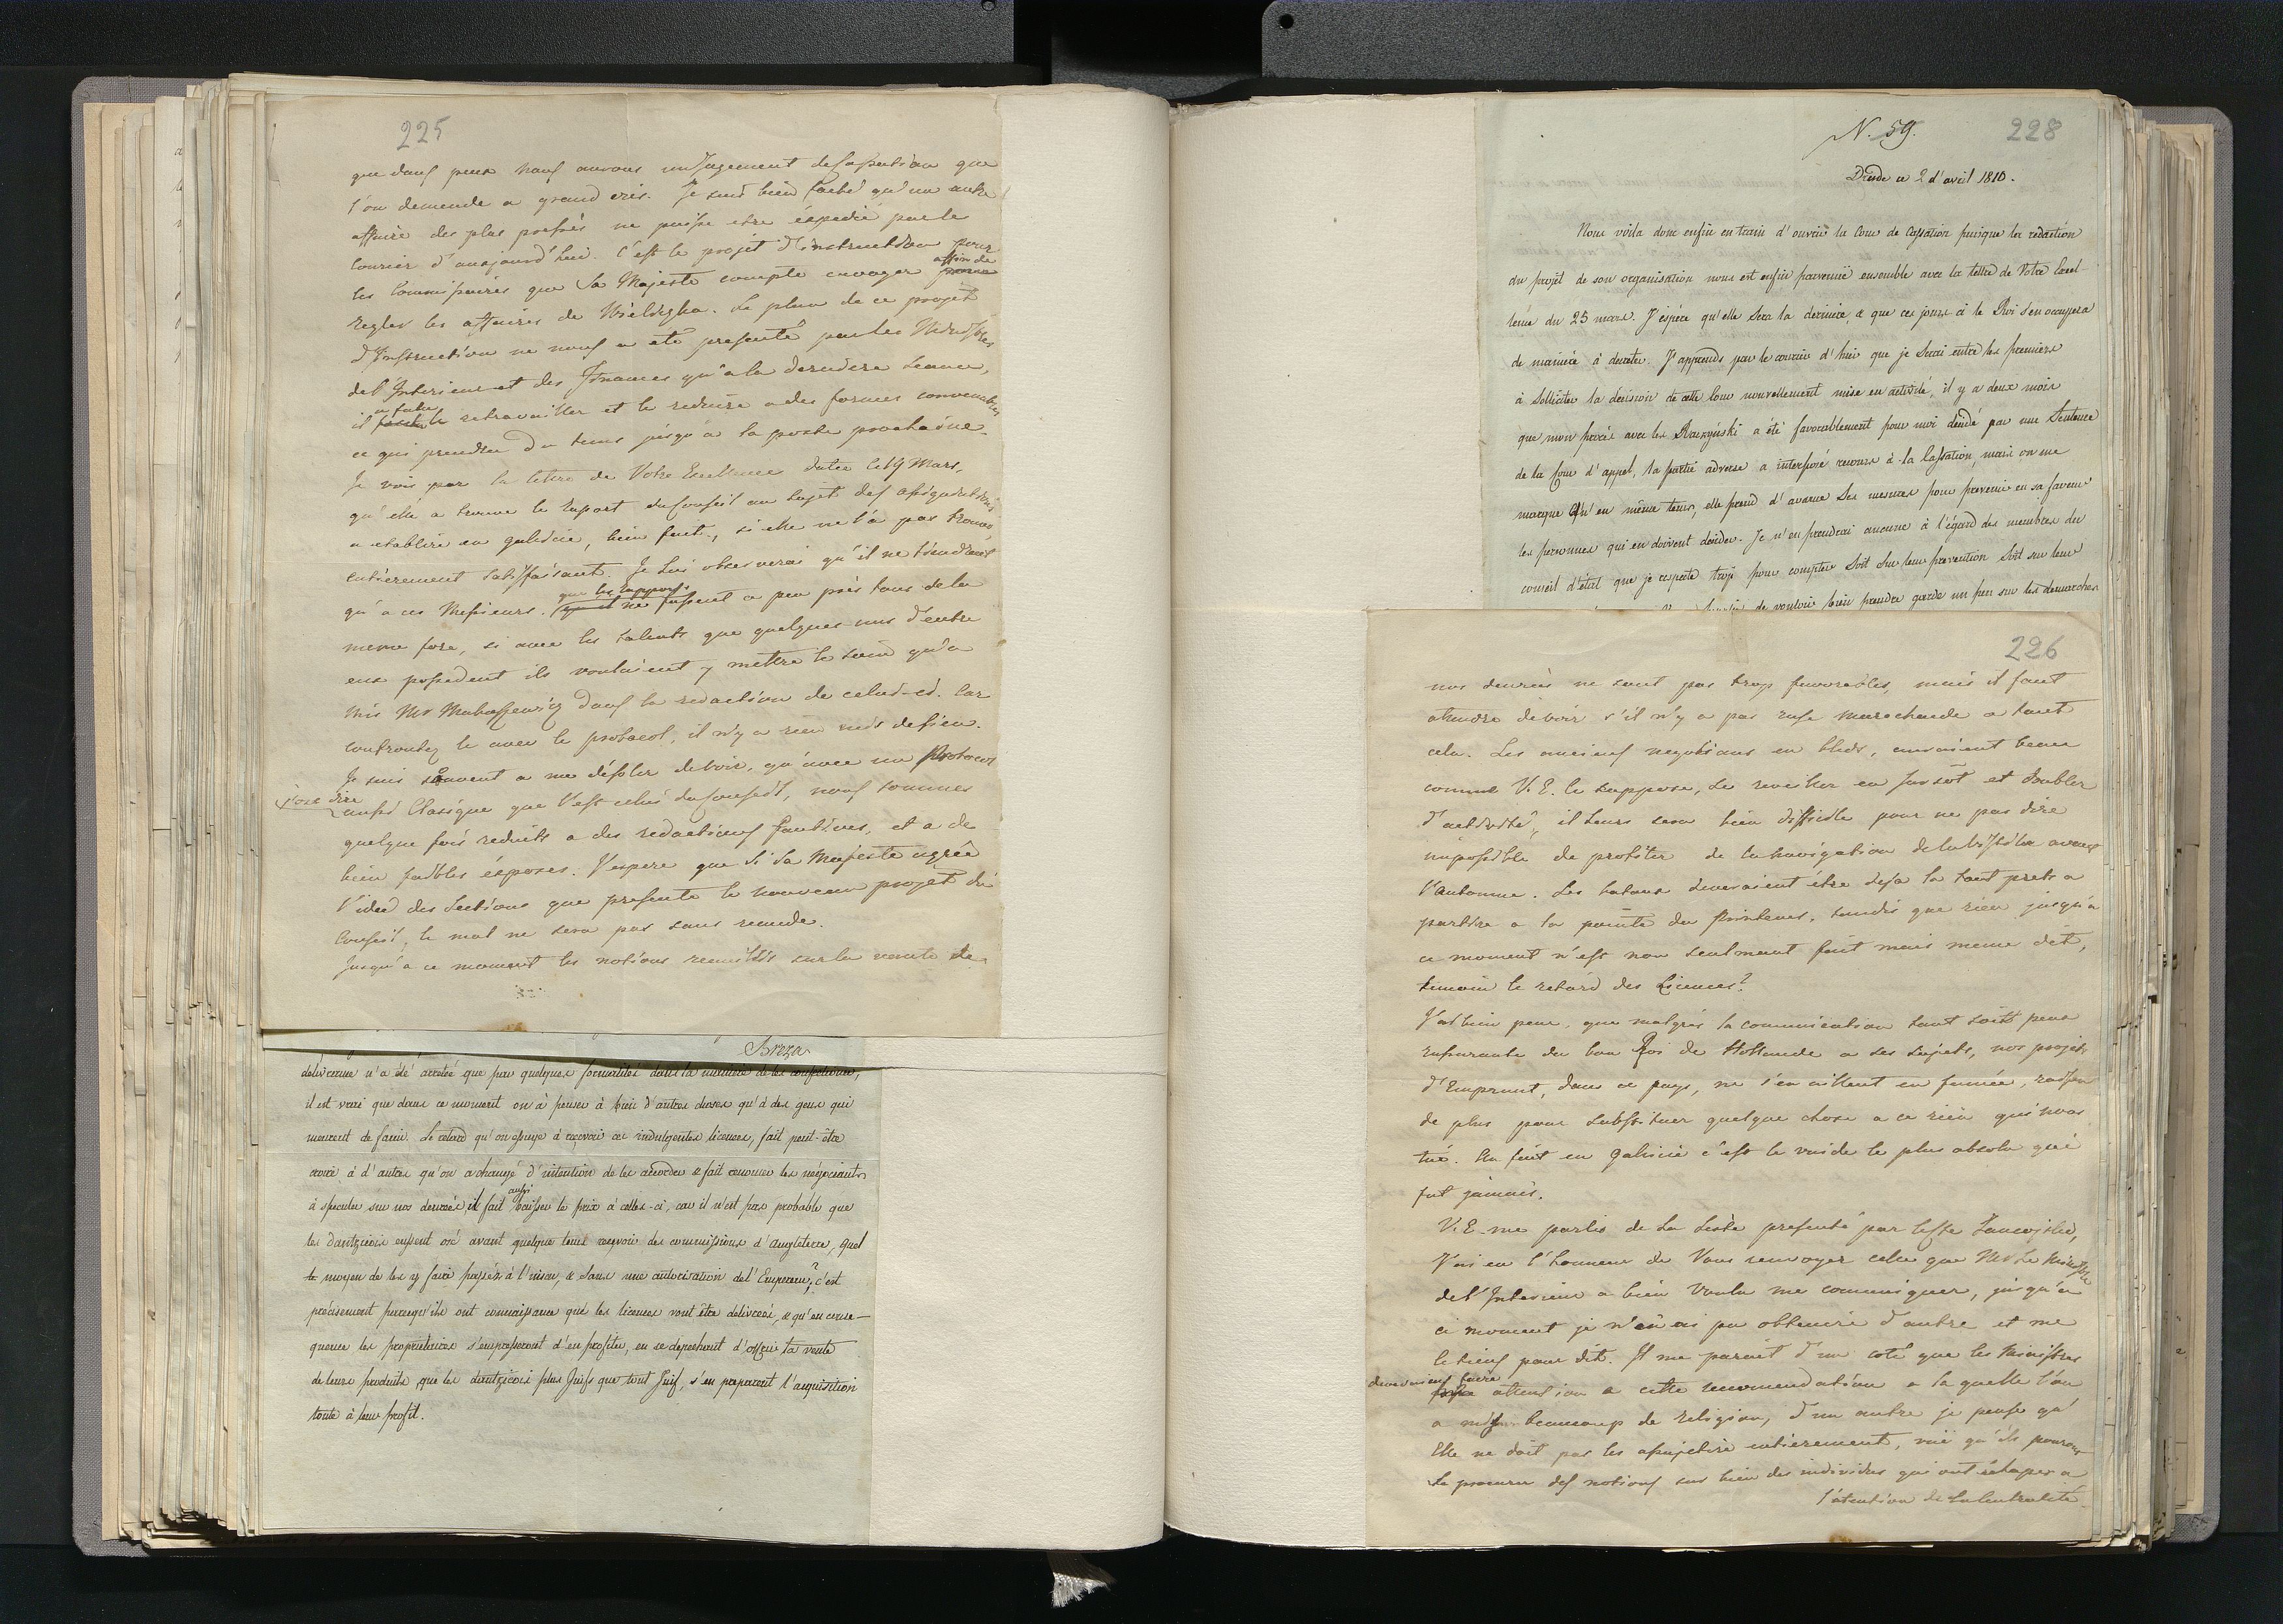 225
que dans peux nous aurons un Jugement de Cassation que
l'on demende a grand cris. Je suis bien faché qu'une autre
affaire des plus pressés ne puisse etre éxpedié par le
Courier d'aujourd'hui. C'est le projet d'instruction pour
les Commissaires que Sa Majesté compte envoyer affin de
regler les affaires de Wieliczka. Le plan de ce projet
d'Instruction ne nous a été presenté par les Ministres
de l'Interieur et des Finances qu'a la derniere seance,
il a falu le retravailler et le reduire a des formes convenables
ce qui prendra du tems jusqu'a la poste prochaine.
Je vois par la lettre de Votre Excellence datée le 19 Mars,
qu'elle a trouvé le raport du Conseil au sujet des
a etablire en galicie, bien fait, si elle ne l'a pas trouvé
entierement satisfaisant. Je Lui observerai qu'il ne tiendrait
qu'a ces Messieurs. que les rapports ne fussent a peu près tous de la
meme force, si avec les talents que quelques uns d'entre
eux possedent ils voulaient y mettre le soin qu'a
mis Mr Mabaszewicz dans la redaction de celui-ci. Car
confrontez le avec le protocol, il n'y a rien mis de sien.
Je suis souvent a me désoler de voir, qu'avec un Protocol
j'ose dire
aussi Clasique que l'est celui du Conseil, nous sommes
quelque fois reduits a des redactions fautives, et a de
bien faibles éxposés. J'espere que si Sa Majesté agrée
l'idée des Sections que presente le nouveau projet du
Conseil, le mal ne sera pas sans remede.
Jusqu'a ce moment les notions recueillis sur la vente de
Breza
délivrance n'a été arretée que par quelques formalités dans la maniere de les confectioner,
il est vrai que dans ce moment on a à penser à bien d'autres choses qu'à des gens qui
meurent de faim. Le retard qu'on essuye à recevoir ces indulgentes licences, fait peut-être
croire à d'autres qu'on a changé d'intention de les accorder & fait renoncer les négociants
à speculer sur nos denrées, il fait aussi baisser le prix à celles-ci, car il n'est pas probable que
les dantzicois eussent osé avant quelque tems recevoir des commissions d'Angleterre, quel
moyen de les y faire passer à l'insu, & sans une autorisation de l'Empereur? c'est
précisement parcequ'ils ont connaissance que les licences vont être délivrées, & qu'en conse-
quence les proprietaires s'empresseront d'en profiter, en se depechant d'offrir la vente
de leurs produits, que les dantzicois plus Juifs que tout Juif, s'en preparent l'acquisition
toute à leur profit.
N. 59.
228
Dresde ce 2 d'avril 1810.
Nous voila donc enfin en train d'ouvrir la Cour de Cassation puisque la redaction
du projet de son organisation nous est enfin parvenüe ensemble avec la lettre de Votre Excel-
lence du 25 mars. J'espére qu'elle sera la derniere, & que ces jours ci le Roi s'en occupera
de maniere à decreter. J'apprends par le courier d'hui que je serai entre les premiers
à solliciter la décision de cette Cour nouvellement mise en activité, il y a deux mois
que mon procès avec les Raczyński a été favorablement pour moi décidé par une Sentence
de la Cour d'appel, la partie adverse a interposé recours à la Cassation, mais on me
marque qu'en même tems, elle prend d'avance ses mesures pour prevenir en sa faveur
les personnes qui en doivent decider. Je n'en prendrai aucune à l'égard des membres du
conseil d'état que je respecte trop pour compter soit sur leur prevention soit sur leur
de vouloir bien prendre garde un peu sur les demarches
226
nos denrées ne sont pas trop favorables, mais il faut
atendre de voir s'il n'y a pas ruse marchande a tout
cela. Les anciens negotians en bleds, auraient beau
comme V. E. le suppose, se reveiller en sursot et doubler
d'activité, il leurs sera bien difficile pour ne pas dire
impossible de profiter de la navigation de la Vistula avant
l'Automne. Les bataux devraient être deja la tout prets a
partire a la pointe du Printems, tandis que rien jusqu'a
ce moment n'est non seulement fait mais meme dit,
temoin le retard des Licences?
J'ai bien peur, que malgrés la communication tant soit peux
rassurante du bon Roi de Hollande a ses sujets, nos projets
d'Emprunt, dans ce pays, ne s'en aillent en fumée, raison
de plus pour substituer quelque chose a ce rien qui nous
tue. En fait en galicie c'est le vuide le plus absolu qui
fut jamais.
V. E. me parle de la Liste presenté par le Cte Zamoÿski,
J'ai eu l'honneur de Vous renvoyer celle que Mr Le Ministre
de l'Interieur a bien voulu me comuniquer, jusqu'a
ce moment je n'en ai pu obtenire d'autre et me
le tiens pour dit. Il me parait d'un coté que les Ministres
devraient faire
attention a cette recomendation a la quelle l'on
a mis beaucoup de religion, d'un autre je pense qu'
Elle ne doit pas les assujetire entierement, vuë qu'ils pouront
se procurer des notions sur bien des individus qui ont échapés a
l'atention de la Centralité